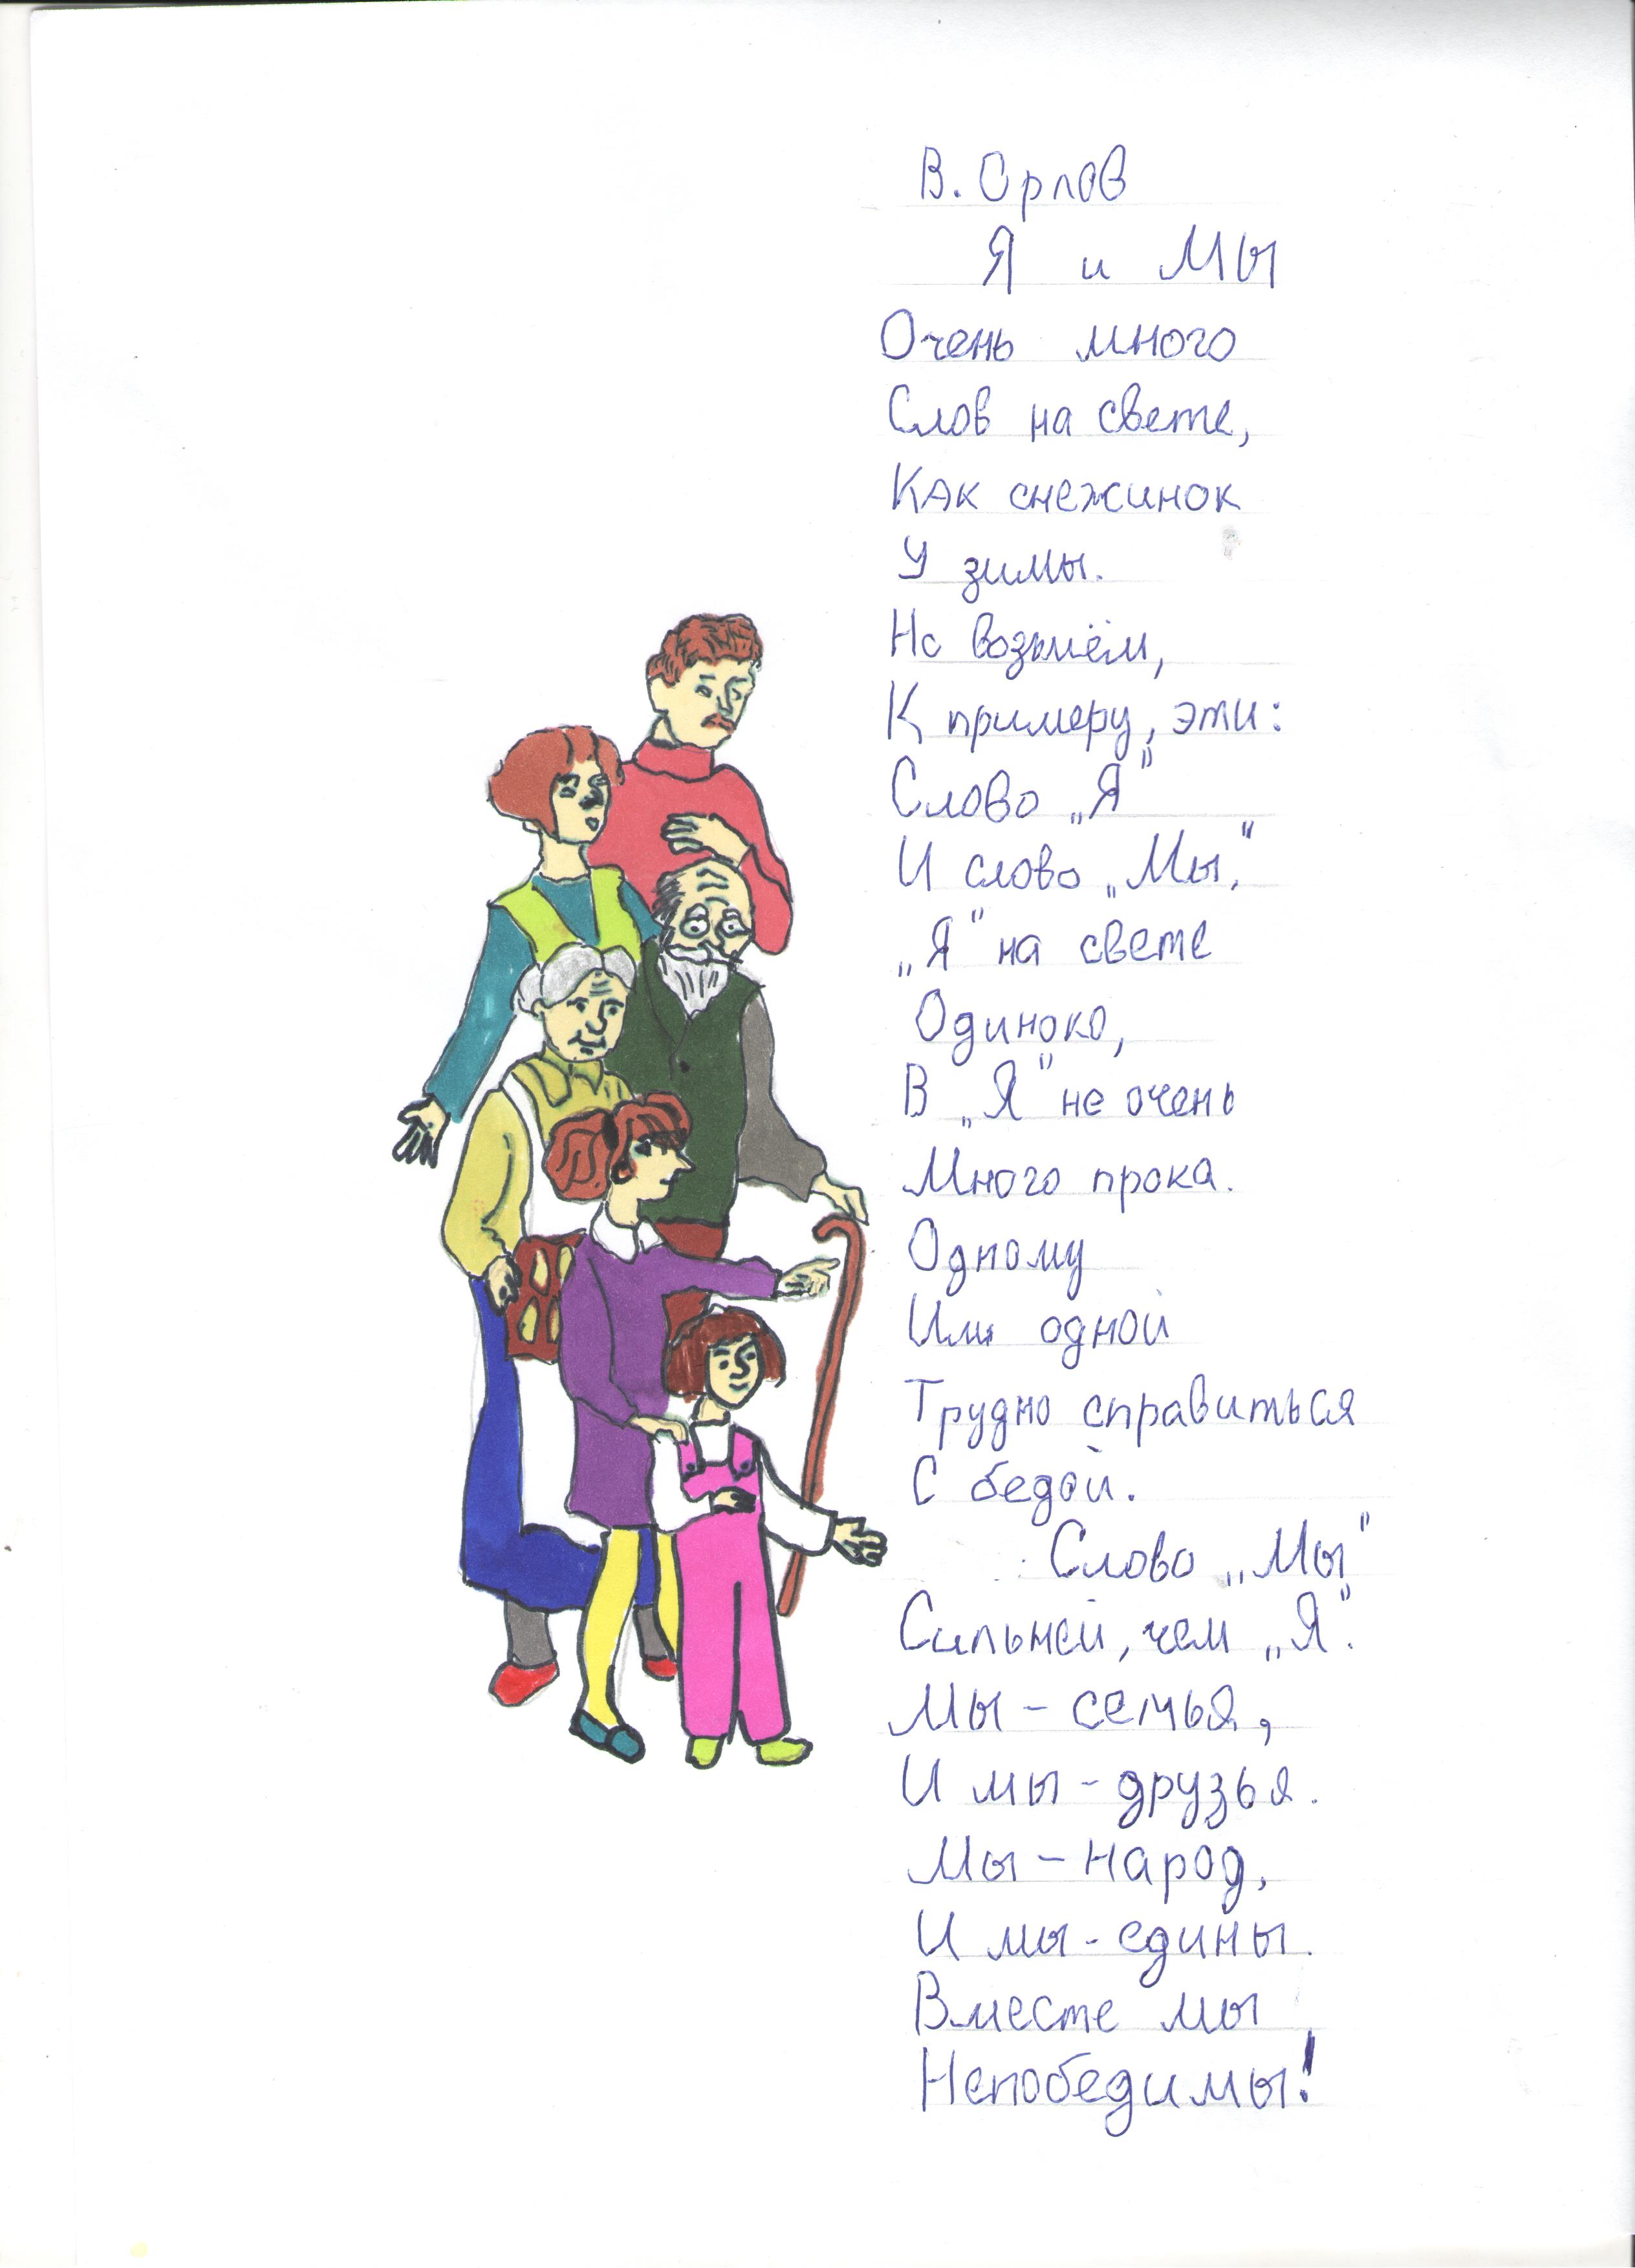 В. Орлов
Я и Мы
Очень много
Слов на свете,
Как снежинок
У зимы.
Но возьмём,
К примеру, эти:
Слово „Я"
И слово „Мы".
„Я" на свете
Одиноко,
В „Я" не очень
Много прока.
Одному
Или одной
Трудно справиться
С бедой.
Слово „Мы"
Сильней, чем „Я".
Мы - семья,
И мы - друзья.
Мы - народ,
И мы - едины.
Вместе мы
Непобедимы!